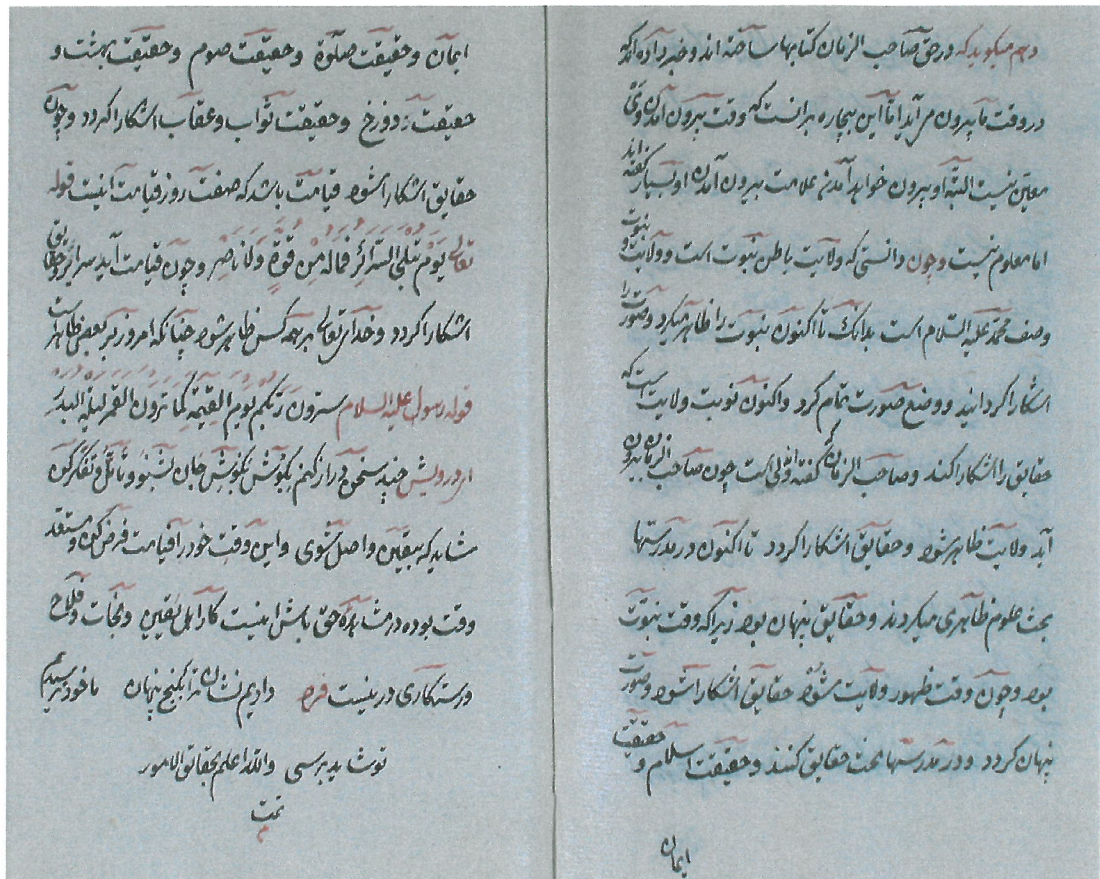 و هم میکوید که در حق صاحب الزمان کتابها ساخته اند و خبر داده اند که
در وقت ما بیرون می آید اما این بیچاره بر آنست که وقت بیرون آمدن وی
معین نیست البته او بیرون خواهد آمدن علامت بیرون آمدن او بسیار گفته اند
اما معلوم نیست و چون دانستی که ولایت باطن نبوت است و ولایت و نبوت
وصف محمد علیه السلام است بدانک تا اکنون نبوت را ظاهر میکرد و صورت را
اشکارا کردانید و وضع صورت تمام کرد و اکنون نوبت ولایت است که
حقایق را اشکارا کند و صاحب الزمان که گفته اند ولی است چون صاحب الزمان بیرون
آید ولایت ظاهر شود و حقایق اشکارا کردد تا اکنون در مدرستها
بحث علوم ظاهری میکردند و حقایق پنهان بود زیرا که وقت نبوت
بود و چون وقت ظهور ولایت شود حقایق اشکارا شود و صورت
پنهان کردد و در مدرستها بحث حقایق کنند و حقیقت اسلام و حقیقت
ایمان
ایمان و حقیقت صلوة و حقیقت صوم و حقیقت بهشت و
حقیقت دوزخ و حقیقت ثواب و عقاب اشکارا کردد و چون
حقایق اشکارا شود قیامت باشد که صفت روز قیامت اینست قوله
تعالی یَوْمَ تُبْلَی السَّرائِرُ فَمَالَهُ مِنْ قُوَّةٍ وَلَا نَاصِرٍ و چون قیامت آید سرایر و حقایق
اشکارا کردد و خدای تعالی بر همه کس ظاهر شود چنانکه امروز بر بعضی ظاهر است
قوله رسول علیه السلام سترون ربکم یوم القیمة کما ترون القمر لیلة البدر
ای درویش چند سخن دراز کنم بکوش بکوش جان بشنو و تامل و تفکر کن
شاید که بیقین واصل شوی و این وقت خود را قیامت فرض کن و مستعد
وقت بوده در مشاهده حق باش اینست کار اهل یقین و نجات و فلاح
و رستکاری در ینست فرد دادیم نشان ترا بکنج پنهان ما خود نرسیدیم
تو شاید برسی والله اعلم بحقائق الامور
تمت
م